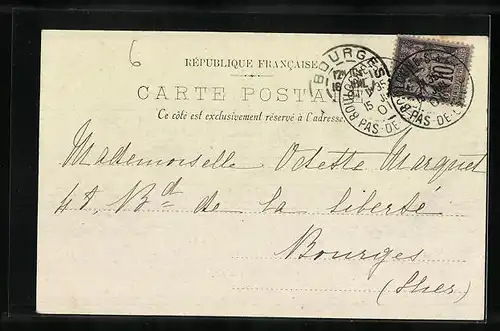 6
RÉPUBLIQUE FRANÇAISE
CARTE POSTA
Ce côté est exclusivement réservé à l'adresse
BOURGES
PAS-DE-C
15
10
Mademoiselle Odette Marquet
48, Bd de la liberté
Bourges
(Cher)